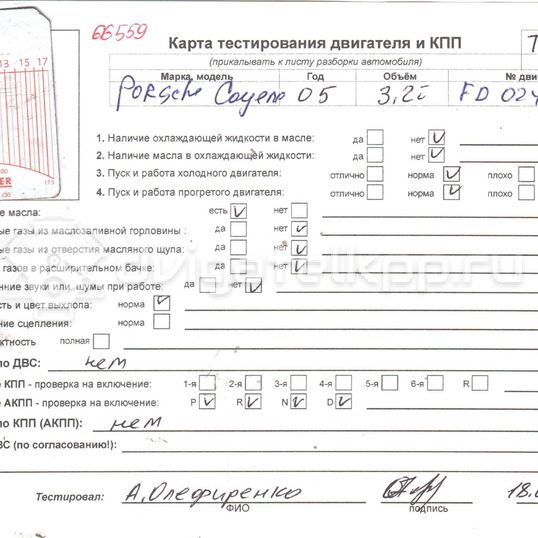 66559
13 15 17
Карта тестирования двигателя и КПП
(прикалывать к листу разборки автомобиля)
Марка, модель Год Объём № дви
Porsche Cayena 05 3,2i FD 024
1. Наличие охлаждающей жидкости в масле: да нет
2. Наличие масла в охлаждающей жидкости: да нет
3. Пуск и работа холодного двигателя: отлично норма плохо
4. Пуск и работа прогретого двигателя: отлично норма плохо
е масла: есть нет
ые газы из маслозаливной горловины : да нет
ые газы из отверстия масляного щупа: да нет
газов в расширительном бачке: да нет
нние звуки или шумы при работе: да нет
сть и цвет выхлопа: норма
ние сцепления: норма
ектность полная
по ДВС: нем
е КПП - проверка на включение: 1-я 2-я 3-я 4-я 5-я 6-я R
е АКПП - проверка на включение: P R N D
по КПП (АКПП): нем
ВС (по согласованию!):
Тестировал: А.Олефиренко 18.
ФИО подпись
dvigatelkpp.ru